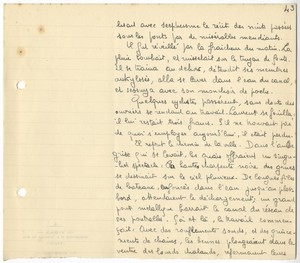 43
lisait avec scepticisme le récit des nuits passées
sous les ponts par de misérables mendiants.
Il fut réveillé par la fraîcheur du matin. La
pluie tombait, et ruisselait sur le tuyau de fonte.
Il se traîna au dehors, détendit ses membres
ankylosés, alla se laver dans l'eau du canal,
et s'essuya avec son mouchoir de poche.
Quelques cyclistes passèrent, sans doute des
ouvriers se rendant au travail. Laurent se fouilla,
il lui restait trois francs. S'il ne trouvait pas
de quoi s'employer aujourd'hui, il était perdu.
Il reprit le chemin de la ville. Dans l'aube
grise qui se levait, les quais offraient un singu-
lier spectacle. La charpente noire des grues
se dessinait sur le ciel pluvieux. De longues files
de bateaux, enfoncés dans l'eau jusqu'au plat
bord, attendaient le déchargement, un grand
pont métallique barrait le canal du réseau de
ses poutrelles. Çà et là, le travail commen-
çait. Avec des ronflements sourds, et des grince-
ments de chaînes, les bennes plongeaient dans le
ventre des lourds chalands, refermaient leurs